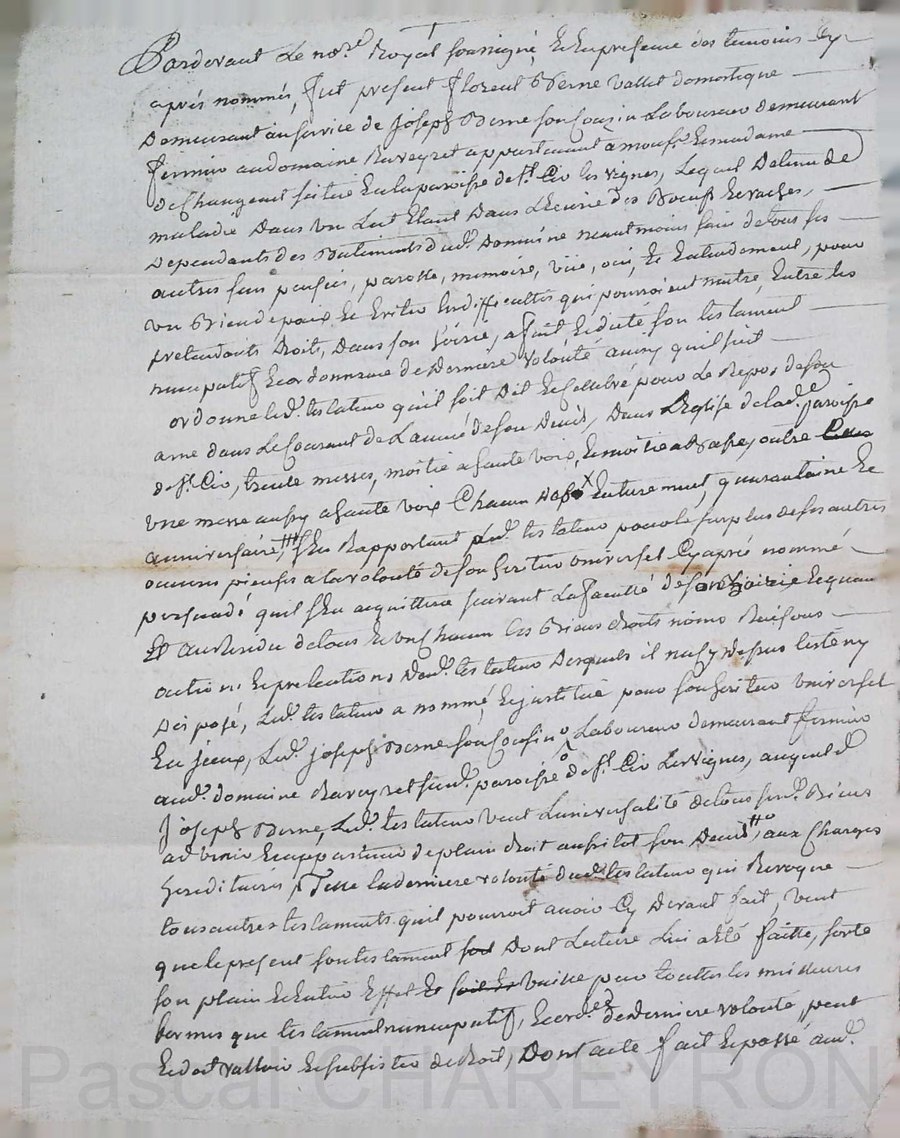 Pardevant Le nore Royal soussigné, Et En presence des temoins Cy
après nommés, fut present florent Berne vallet domestique
Demeurant au service de Joseph Berne son Cousin Laboureur demeurant
fermier au domaine Raveyret appartenant a monsr. Et madame
de Changeat scitué En la paroisse de st. Cir les vignes, Lequel Detenu de
maladie Dans un Lit Etant Dans L'Ecurie des Boeufs Et vaches,
Dependants des Batiments dud. Domaine neantmoins sain de tous ses
autres sens pensées, parolle, memoire, vüe, oui, Et Entendement, pour
un Bien de paix Et Eviter Les difficultés qui pourroient naitre, Entre les
pretendants Droits, Dans son hoirie, a fait Et dicté son testament
nuncupatif Et ordonnance de Derniere volonté ainsy quil suit
ordonne led. testateur quil soit Dit Et Cellebré pour Le Repos de son
ame dans Le Courant de L'année de son Deceds, Dans L'Eglise de lad. paroisse
de st. Cir, trente messes, moitié a haute voix, Et moitié a Basse, outre
une messe aussy a haute voix Chacun Enterrement, quarantaine Et
anniversaire, s'En Rapportant Led. testateur pour le surplus de ses autres
oeuvres pieuses a la volonté de son heritier universel Cy après nommé
persuadé quil s'En acquittera suivant La faculté de son hoirie Et quan
Et au Residu de tous Et uns Chacun les Biens droits noms Raisons
actions Et pretentions Dud. testateur Desquels il n'a cy Dessus testé ny
Disposé, Led. testateur a nommé Et institué pour son heritier universel
Led. joseph Berne son Cousin Laboureur demeurant fermier
aud. domaine Raveyret susd. paroisse de st. Cir Les vignes, auquel d.
joseph Berne, Led. testateur veut L'universalité de tous sesd. Biens
advenir Et appartenir de plain droit aussitot son Deceds, aux Charges
hereditaires, Telle La derniere volonté dud. testateur qui Revoque
tous autres testaments quil pourroit avoir Cy Devant fait, veut
que le present son testament Dont Lecture Lui a Eté faitte, sorte
son plain Et Entier Effet Et vaille pour touttes les meilleures
formes que testament nuncupatif, Et ordce. de derniere volonté, peut
Et doit valloir Et subsister de droit, Dont acte fait Et passé aud.
Pascal CHAREYRON